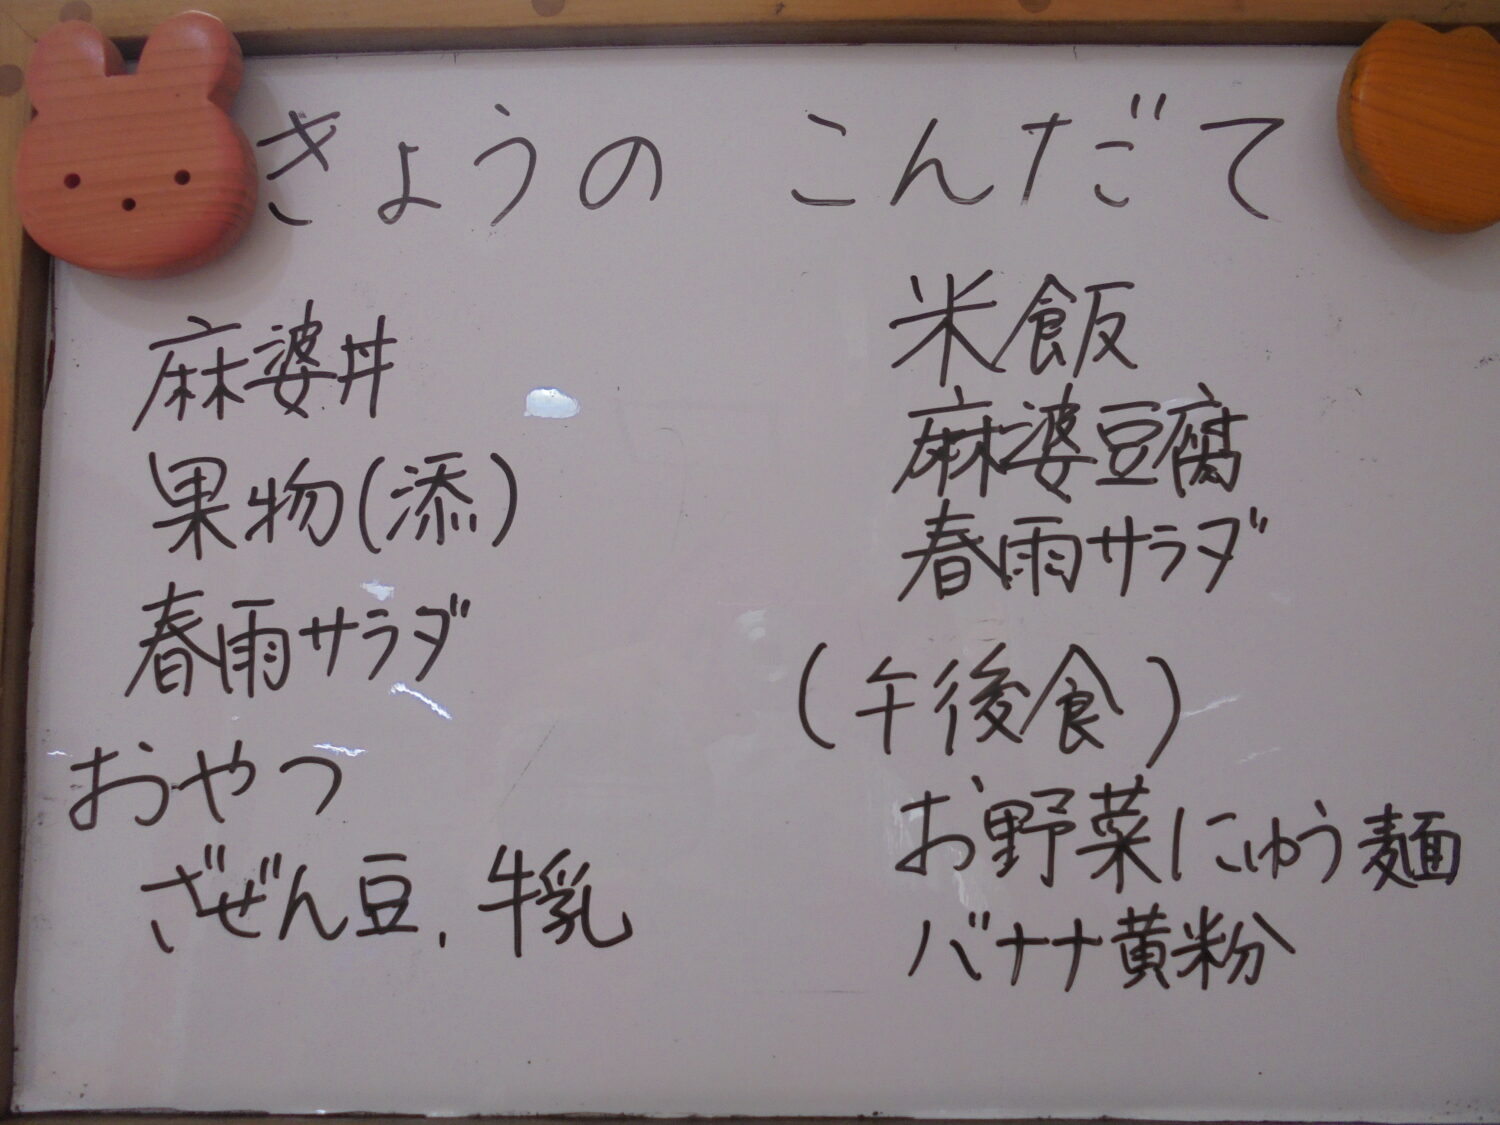 きょうの こんだて
麻婆丼
果物(添)
春雨サラダ
おやつ
ざぜん豆、牛乳
米飯
麻婆豆腐
春雨サラダ
(午後食)
お野菜にゅう麺
バナナ黄粉